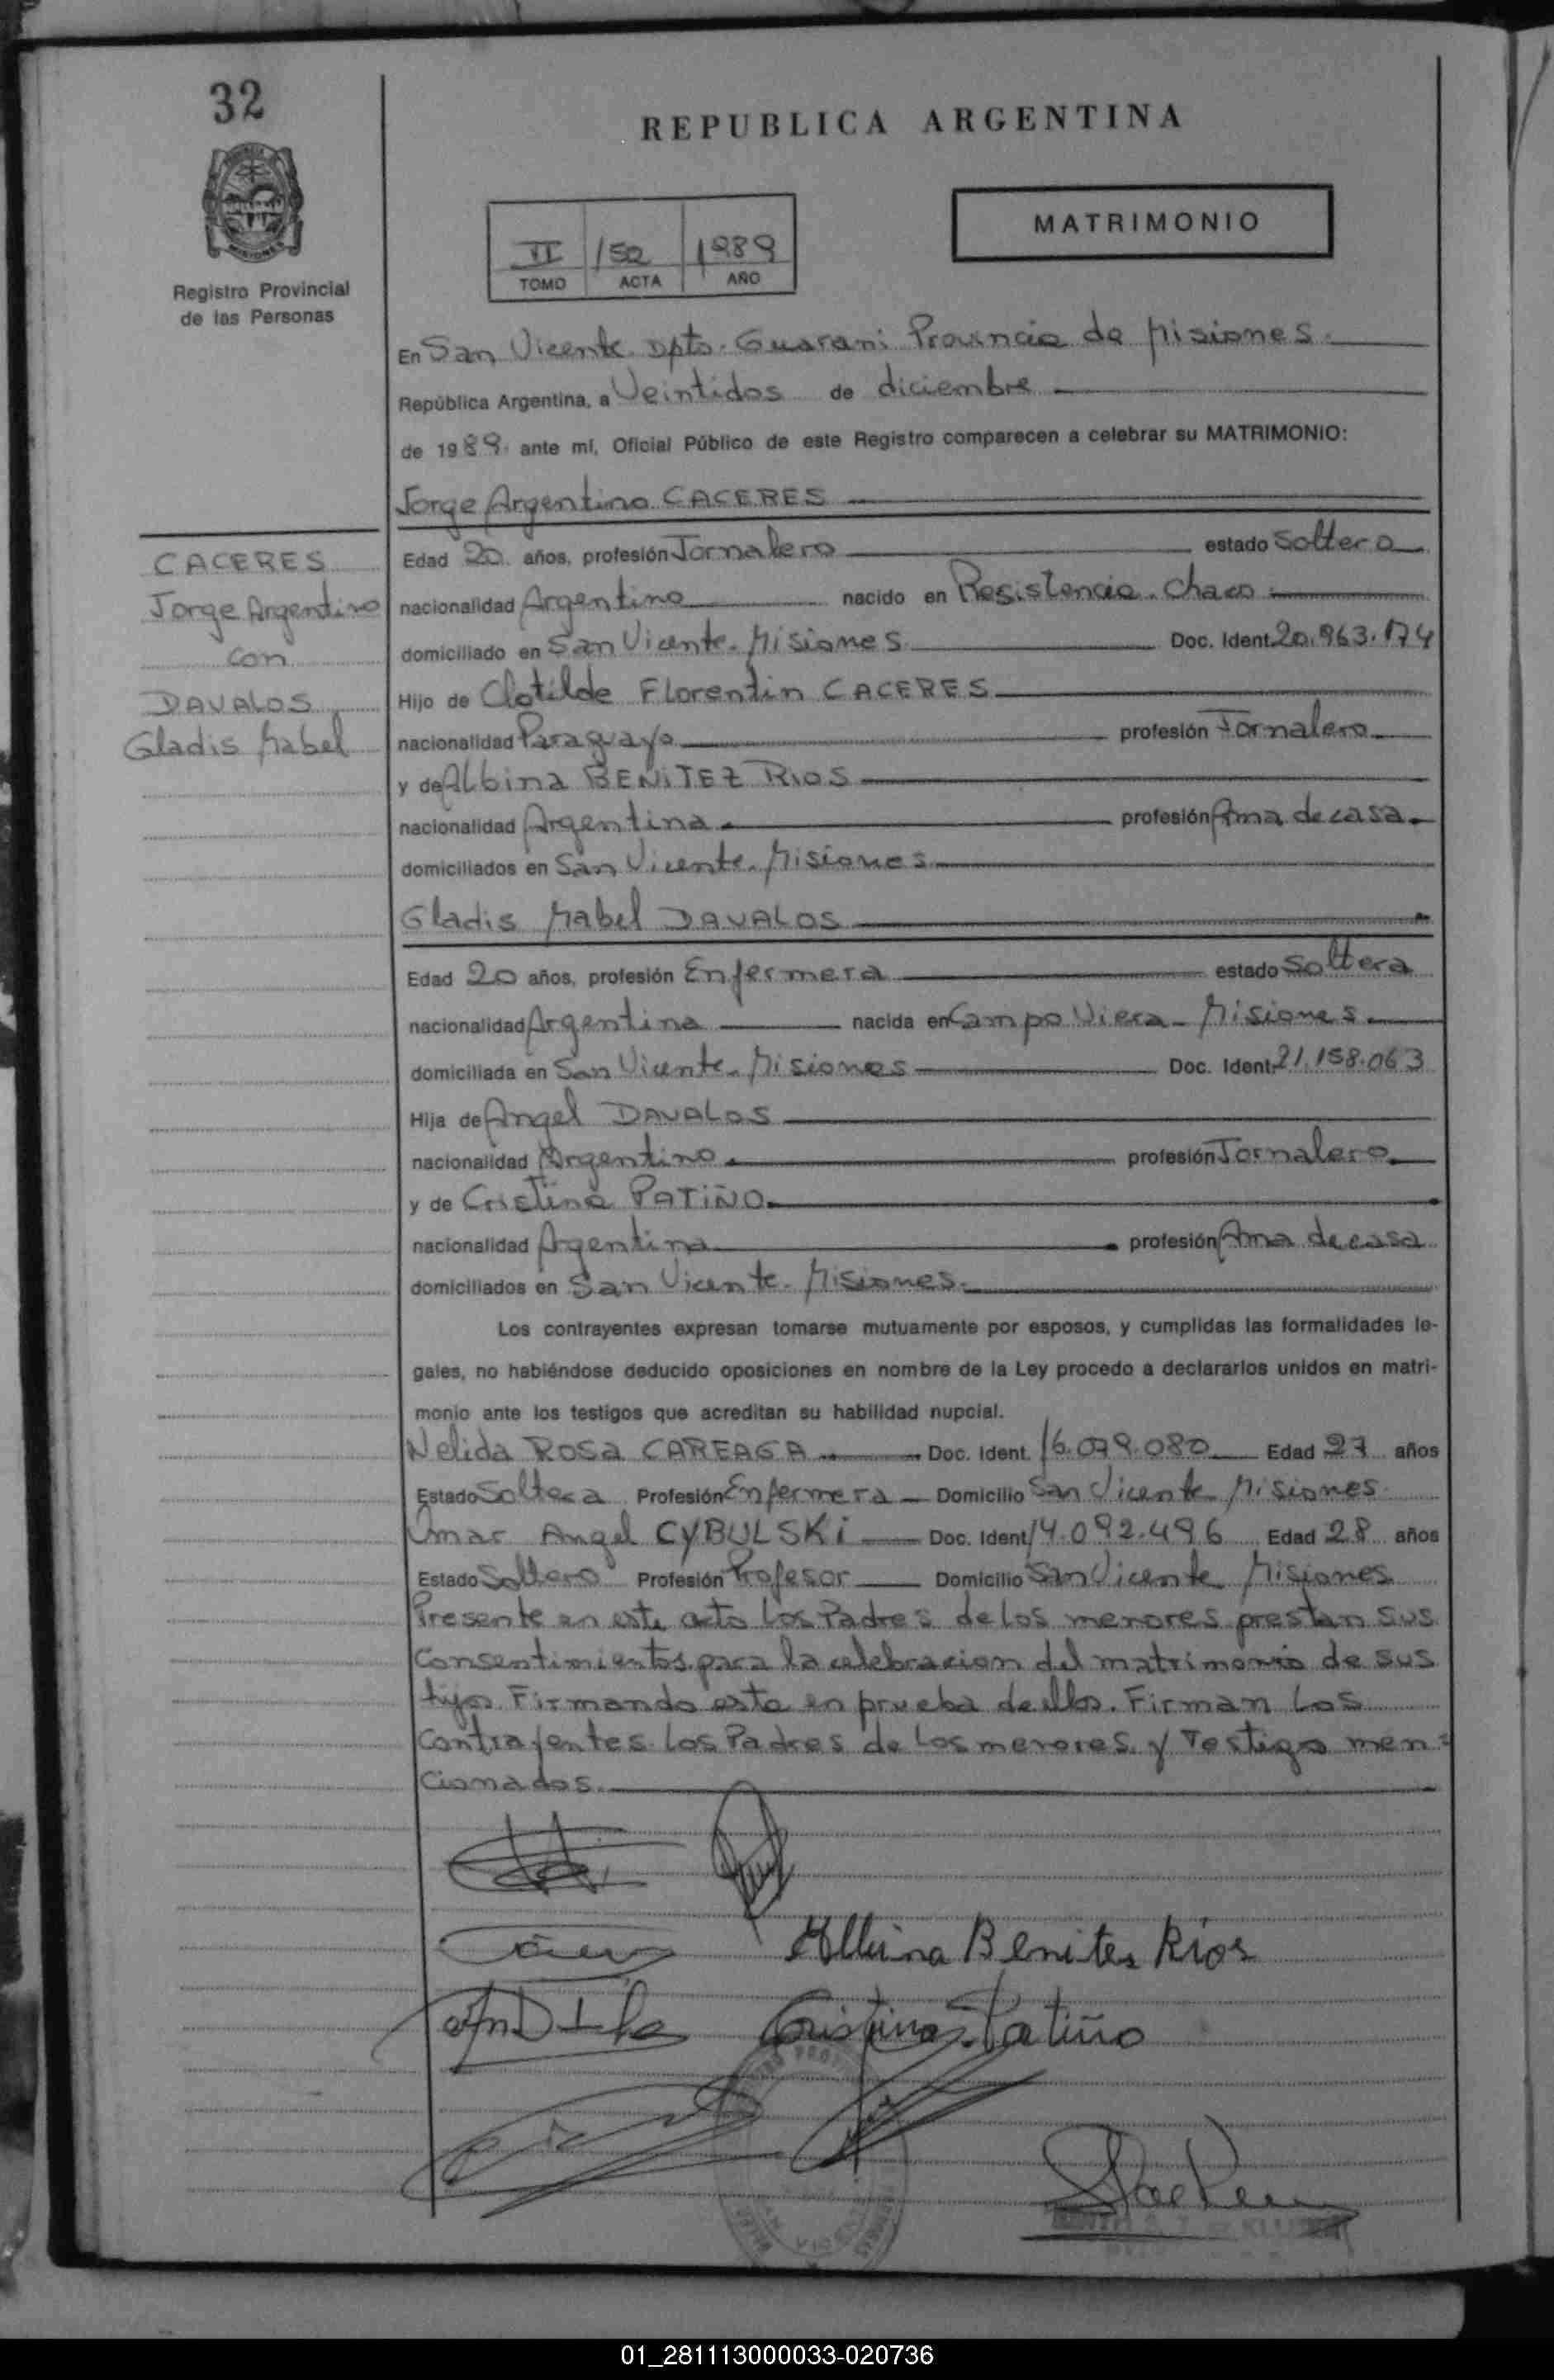 32
REPUBLICA ARGENTINA
MATRIMONIO
II 152 1989
TOMO ACTA AÑO
Registro Provincial
de las Personas
En San Vicente Dpto. Guarani Provincia de Misiones.
República Argentina, a Veintidos de diciembre
de 1989. ante mí, Oficial Público de este Registro comparecen a celebrar su MATRIMONIO:
Jorge Argentino CACERES
CACERES
Jorge Argentino
con
DAVALOS
Gladis Mabel
Edad 20 años, profesión Jornalero estado Soltero
nacionalidad Argentino nacido en Resistencia. Chaco
domiciliado en San Vicente. Misiones Doc. Ident. 20.963.174
Hijo de Clotilde Florentin CACERES
nacionalidad Paraguayo profesión Jornalero
y de Albina BENITEZ RIOS
nacionalidad Argentina profesión Ama de casa.
domiciliados en San Vicente. Misiones
Gladis Mabel DAVALOS
Edad 20 años, profesión Enfermera estado Soltera
nacionalidad Argentina nacida en Campo Viera - Misiones
domiciliada en San Vicente. Misiones Doc. Ident. 21.158.063
Hija de Angel DAVALOS
nacionalidad Argentino profesión Jornalero
y de Cristina PATIÑO
nacionalidad Argentina profesión Ama de casa
domiciliados en San Vicente - Misiones.
Los contrayentes expresan tomarse mutuamente por esposos, y cumplidas las formalidades le-
gales, no habiéndose deducido oposiciones en nombre de la Ley procedo a declararlos unidos en matri-
monio ante los testigos que acreditan su habilidad nupcial.
Nelida Rosa CAREAGA Doc. Ident. 16.079.080 Edad 27 años
Estado Soltera Profesión Enfermera Domicilio San Vicente Misiones
Omar Angel CYBULSKi Doc. Ident. 14.092.496 Edad 28 años
Estado Soltero Profesión Profesor Domicilio San Vicente Misiones
Presente en este acto los Padres de los menores prestan sus
Consentimientos para la celebracion del matrimonio de sus
hijos Firmando esta en prueba de ello. Firman los
Contrayentes los Padres de los menores y Testigo men=
cionados.
Albina Benites Ríos
Cristina Patiño
01_281113000033-020736